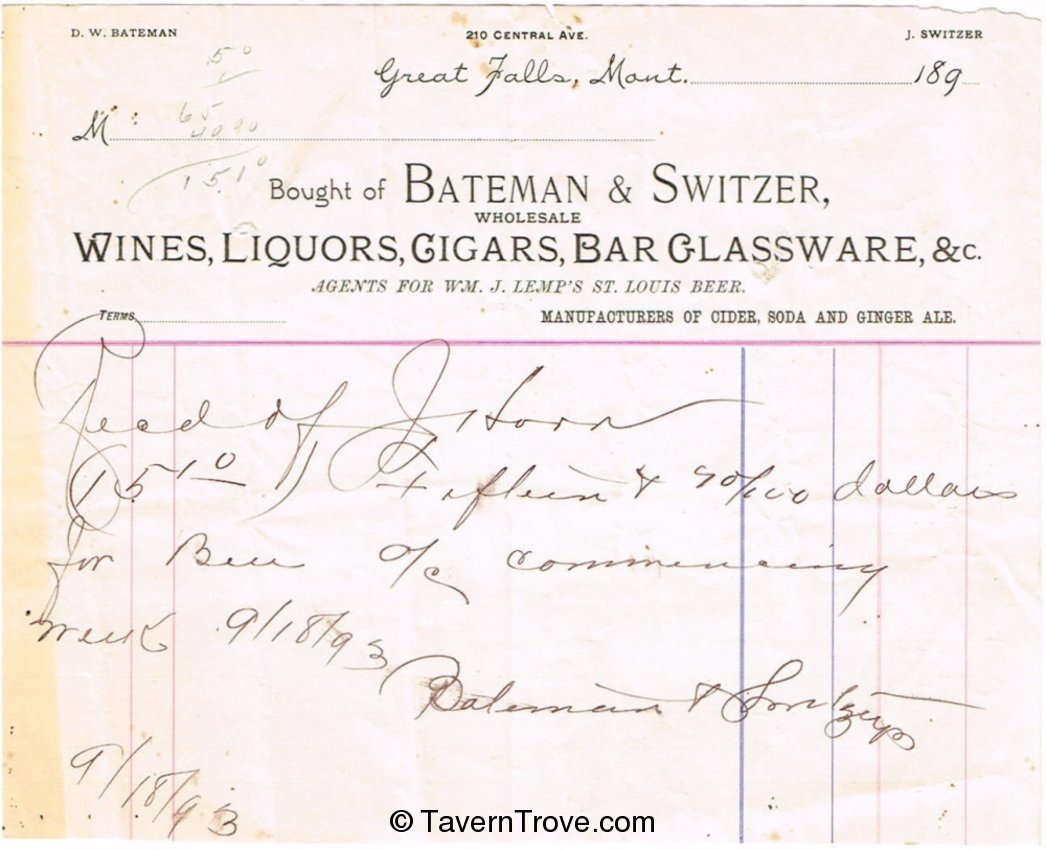 D. W. BATEMAN 210 CENTRAL AVE. J. SWITZER
50
Great Falls, Mont. 189
M
151°
Bought of BATEMAN & SWITZER,
WHOLESALE
WINES, LIQUORS, CIGARS, BAR GLASSWARE, &c.
AGENTS FOR WM. J. LEMP'S ST. LOUIS BEER.
TERMS MANUFACTURERS OF CIDER, SODA AND GINGER ALE.
Recd of J Horn
15 10 Fifteen & /100 dollars
for Beer a/c commencing
week 9/18/93
Bateman & Switzer
9/18/93
© TavernTrove.com